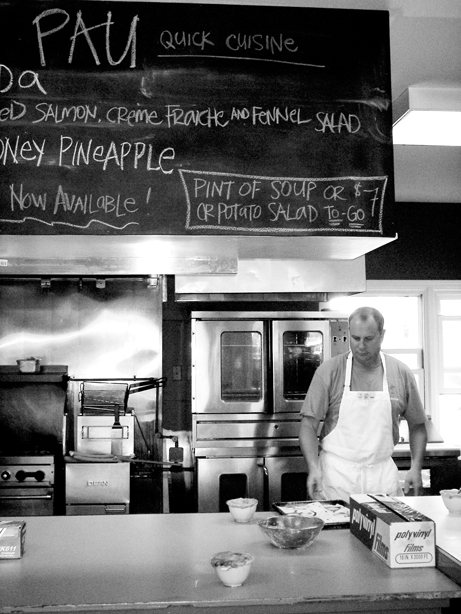 PAU QUICK CUISINE
DA
ED SALMON, CRÈME FRAICHE AND FENNEL SALAD
ONEY PINEAPPLE
NOW AVAILABLE!
PINT OF SOUP OR $7
OR POTATO SALAD TO-GO
DEAN
polyvinyl films
polyvinyl
films